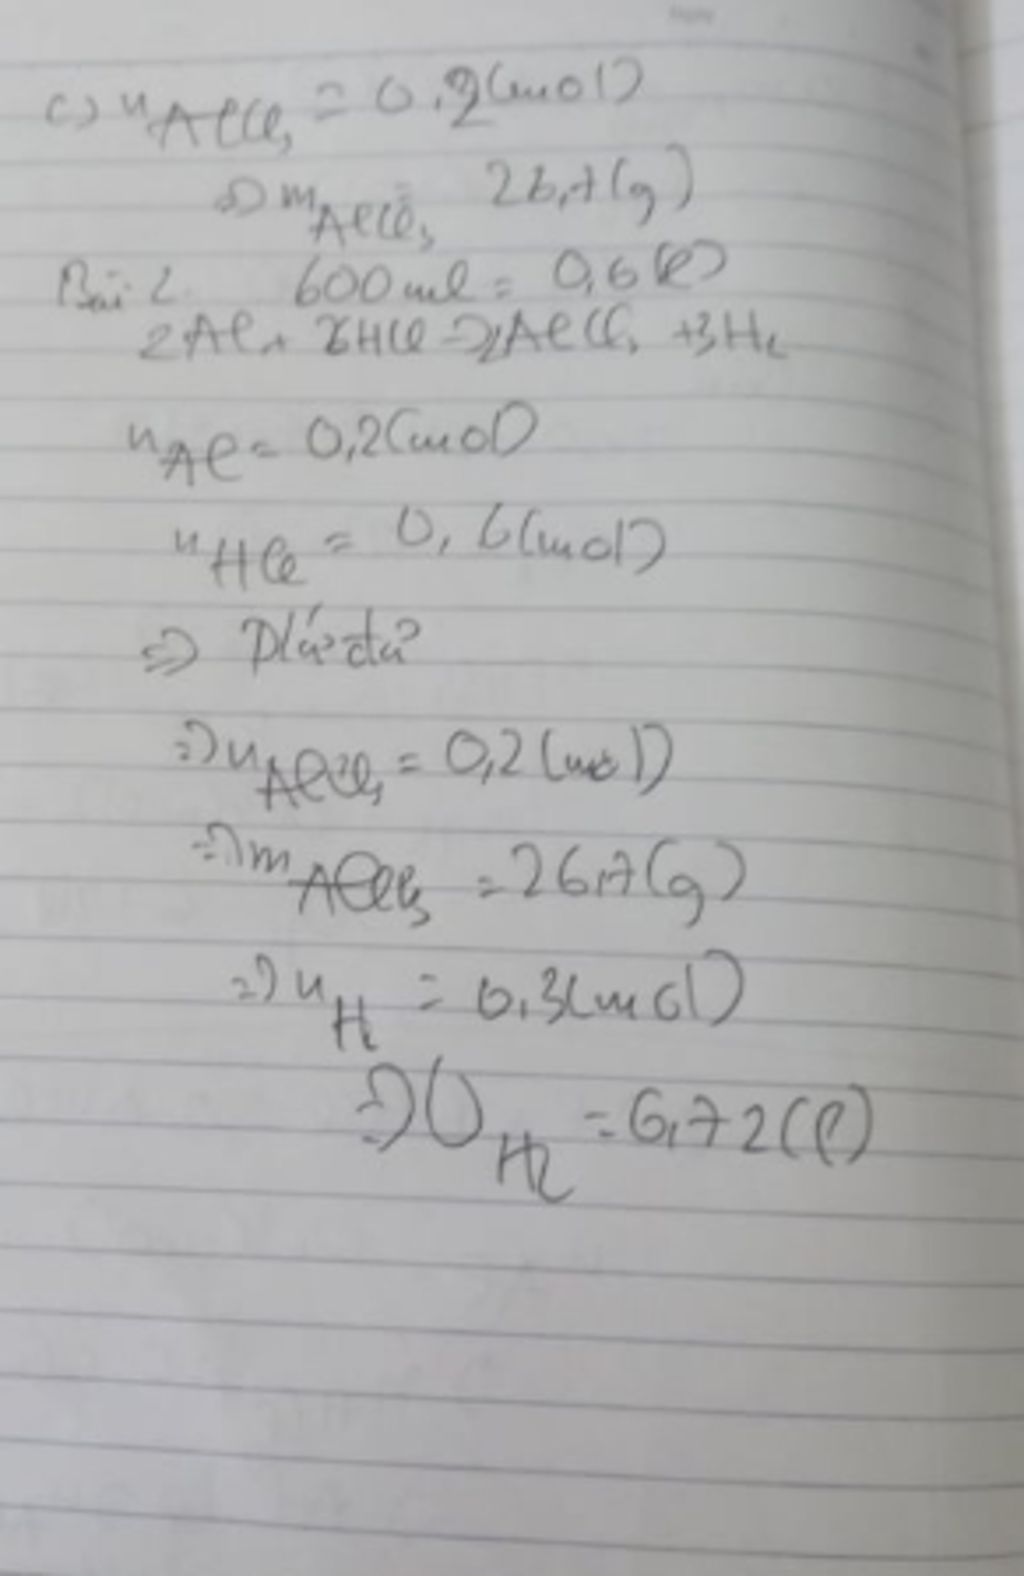 c) nAlCl3 = 0,2(mol)
=> mAlCl3 = 26,7(g)
Bài 2. 600ml = 0,6(l)
2Al + 6HCl => 2AlCl3 + 3H2
nAl = 0,2(mol)
nHCl = 0,6(mol)
=>
=> nAlCl3 = 0,2(mol)
=> mAlCl3 = 26,7(g)
=> nH2 = 0,3(mol)
=> VH2 = 6,72(l)